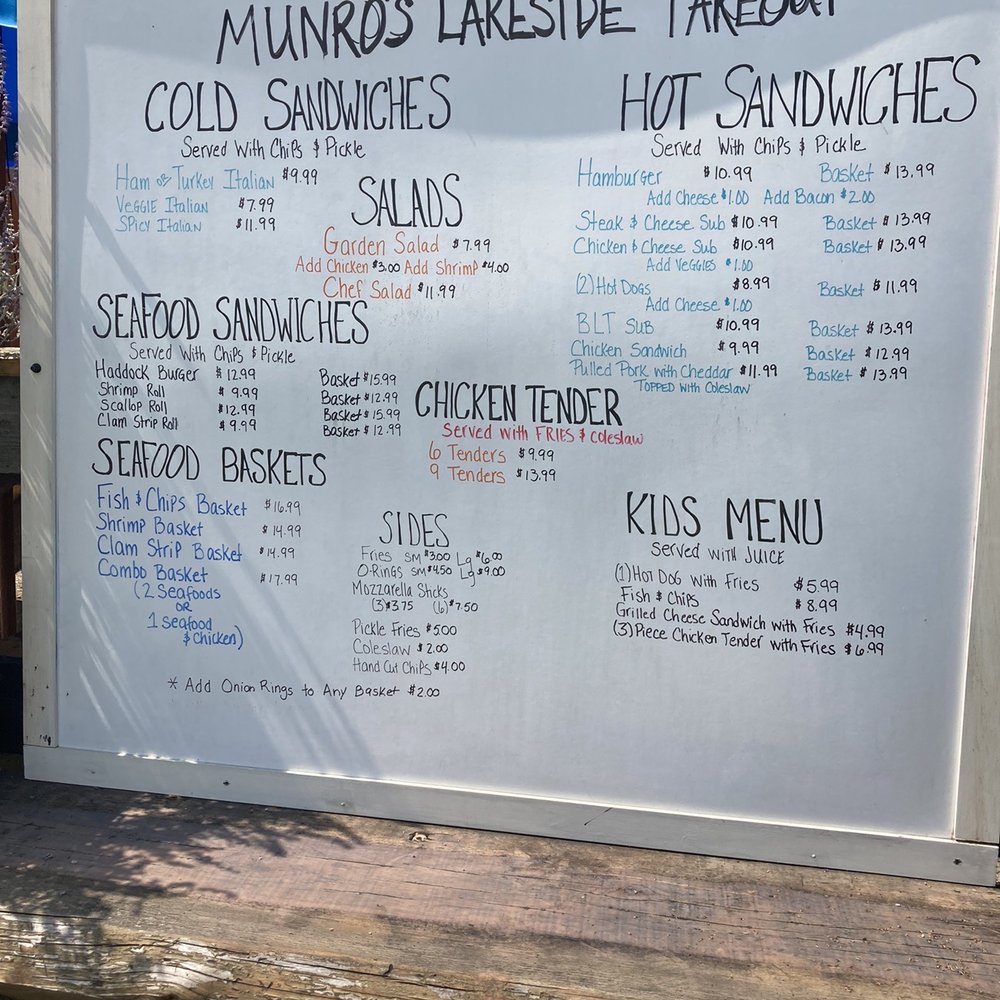 MUNRO'S LAKESIDE TAKEOUT
COLD SANDWICHES
Served With Chips & Pickle
Ham or Turkey Italian $9.99
Veggie Italian $7.99
Spicy Italian $11.99
SALADS
Garden Salad $7.99
Add Chicken $3.00 Add Shrimp $4.00
Chef Salad $11.99
SEAFOOD SANDWICHES
Served With Chips & Pickle
Haddock Burger $12.99 Basket $15.99
Shrimp Roll $9.99 Basket $12.99
Scallop Roll $12.99 Basket $15.99
Clam Strip Roll $9.99 Basket $12.99
SEAFOOD BASKETS
Fish & Chips Basket $16.99
Shrimp Basket $14.99
Clam Strip Basket $14.99
Combo Basket $17.99
(2 Seafoods
OR
1 Seafood
& Chicken)
* Add Onion Rings to Any Basket $2.00
HOT SANDWICHES
Served With Chips & Pickle
Hamburger $10.99 Basket $13.99
Add Cheese $1.00 Add Bacon $2.00
Steak & Cheese Sub $10.99 Basket $13.99
Chicken & Cheese Sub $10.99 Basket $13.99
Add Veggies $1.00
(2) Hot Dogs $8.99 Basket $11.99
Add Cheese $1.00
BLT Sub $10.99 Basket $13.99
Chicken Sandwich $9.99 Basket $12.99
Pulled Pork with Cheddar $11.99 Basket $13.99
Topped with Coleslaw
CHICKEN TENDER
Served with FRIES & coleslaw
6 Tenders $9.99
9 Tenders $13.99
SIDES
Fries sm $3.00 Lg $6.00
O-Rings sm $4.50 Lg $9.00
Mozzarella Sticks
(3) $3.75 (6) $7.50
Pickle Fries $5.00
Coleslaw $2.00
Hand Cut Chips $4.00
KIDS MENU
Served with Juice
(1) Hot Dog with Fries $5.99
Fish & Chips $8.99
Grilled Cheese Sandwich with Fries $4.99
(3) Piece Chicken Tender with Fries $6.99